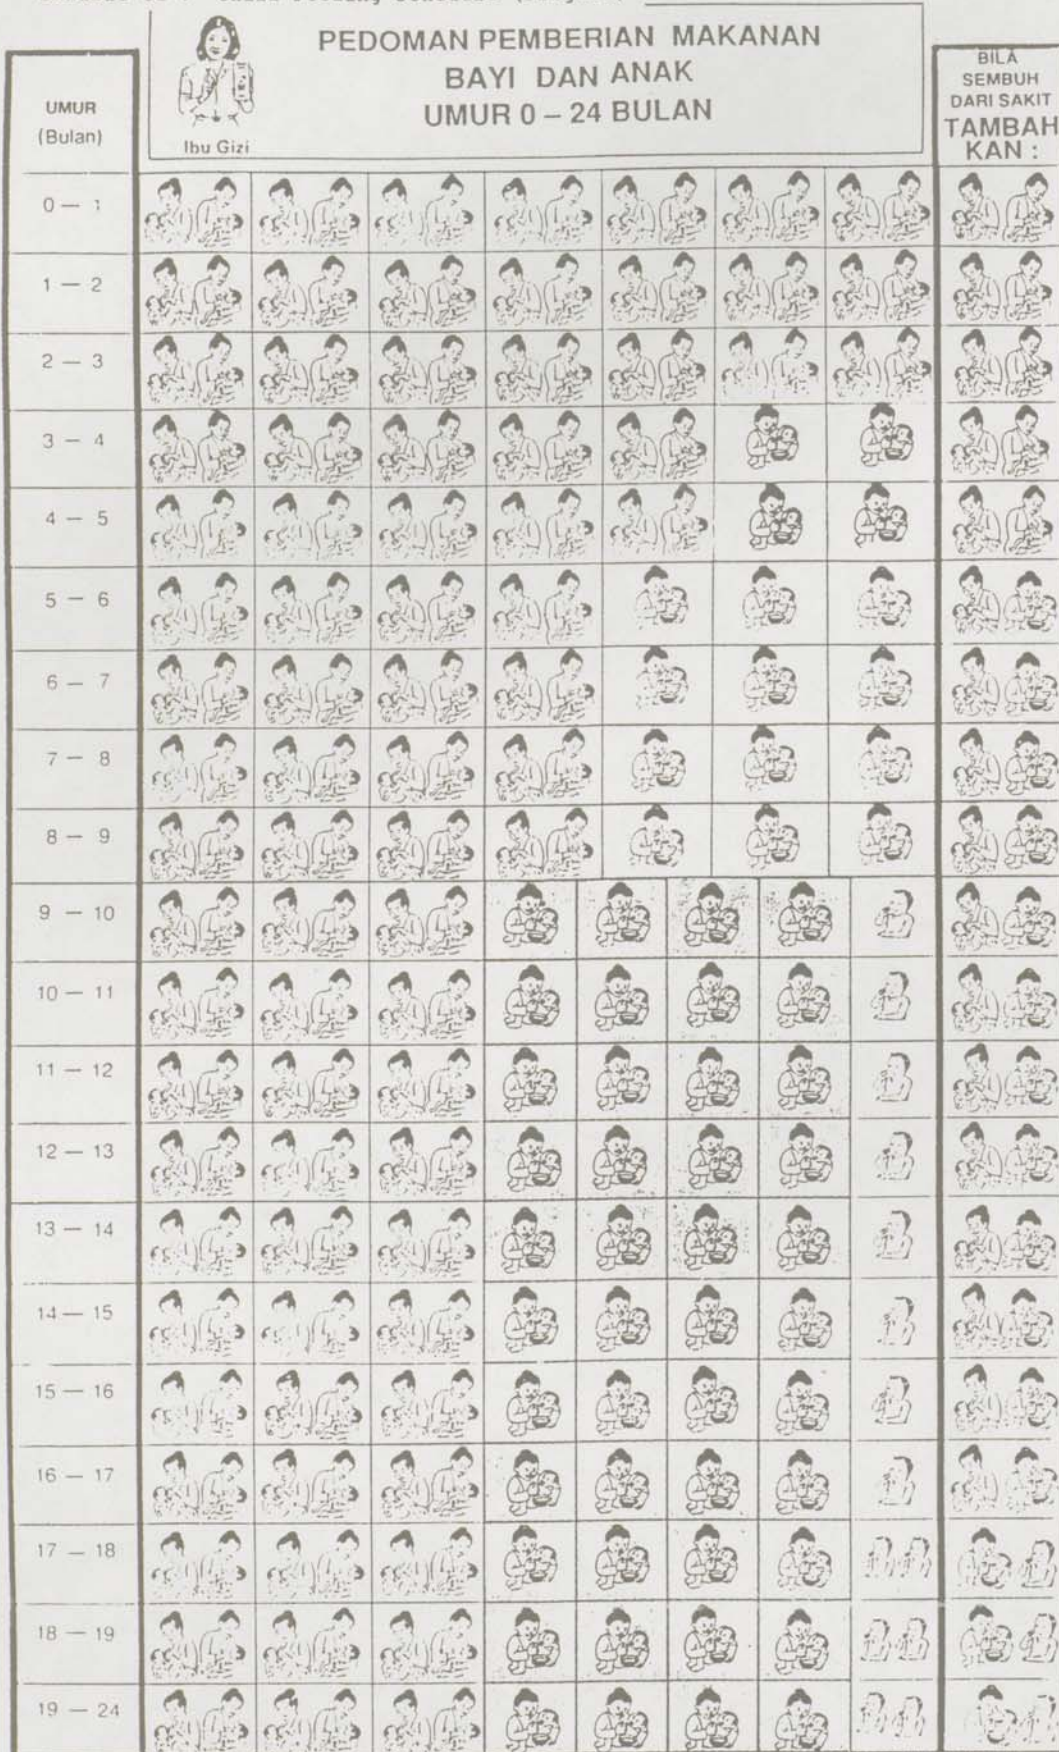 PEDOMAN PEMBERIAN MAKANAN
BAYI DAN ANAK
UMUR 0 – 24 BULAN
Ibu Gizi
UMUR
(Bulan)
BILA
SEMBUH
DARI SAKIT
TAMBAH
KAN :
0 — 1
1 — 2
2 — 3
3 — 4
4 — 5
5 — 6
6 — 7
7 — 8
8 — 9
9 — 10
10 — 11
11 — 12
12 — 13
13 — 14
14 — 15
15 — 16
16 — 17
17 — 18
18 — 19
19 — 24